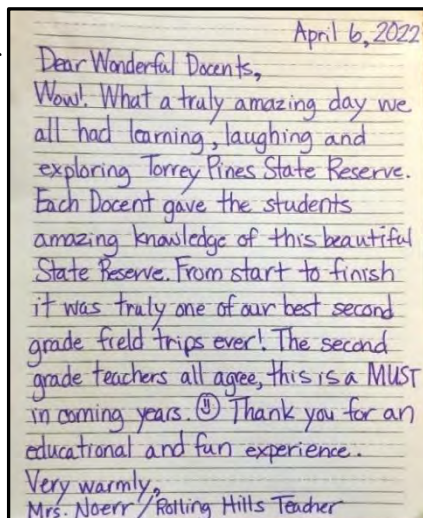 April 6, 2022
Dear Wonderful Docents,
Wow! What a truly amazing day we
all had learning, laughing and
exploring Torrey Pines State Reserve.
Each Docent gave the students
amazing knowledge of this beautiful
State Reserve. From start to finish
it was truly one of our best second
grade field trips ever! The second
grade teachers all agree, this is a MUST
in coming years. ☺ Thank you for an
educational and fun experience.
Very warmly,
Mrs. Noerr / Rolling Hills Teacher